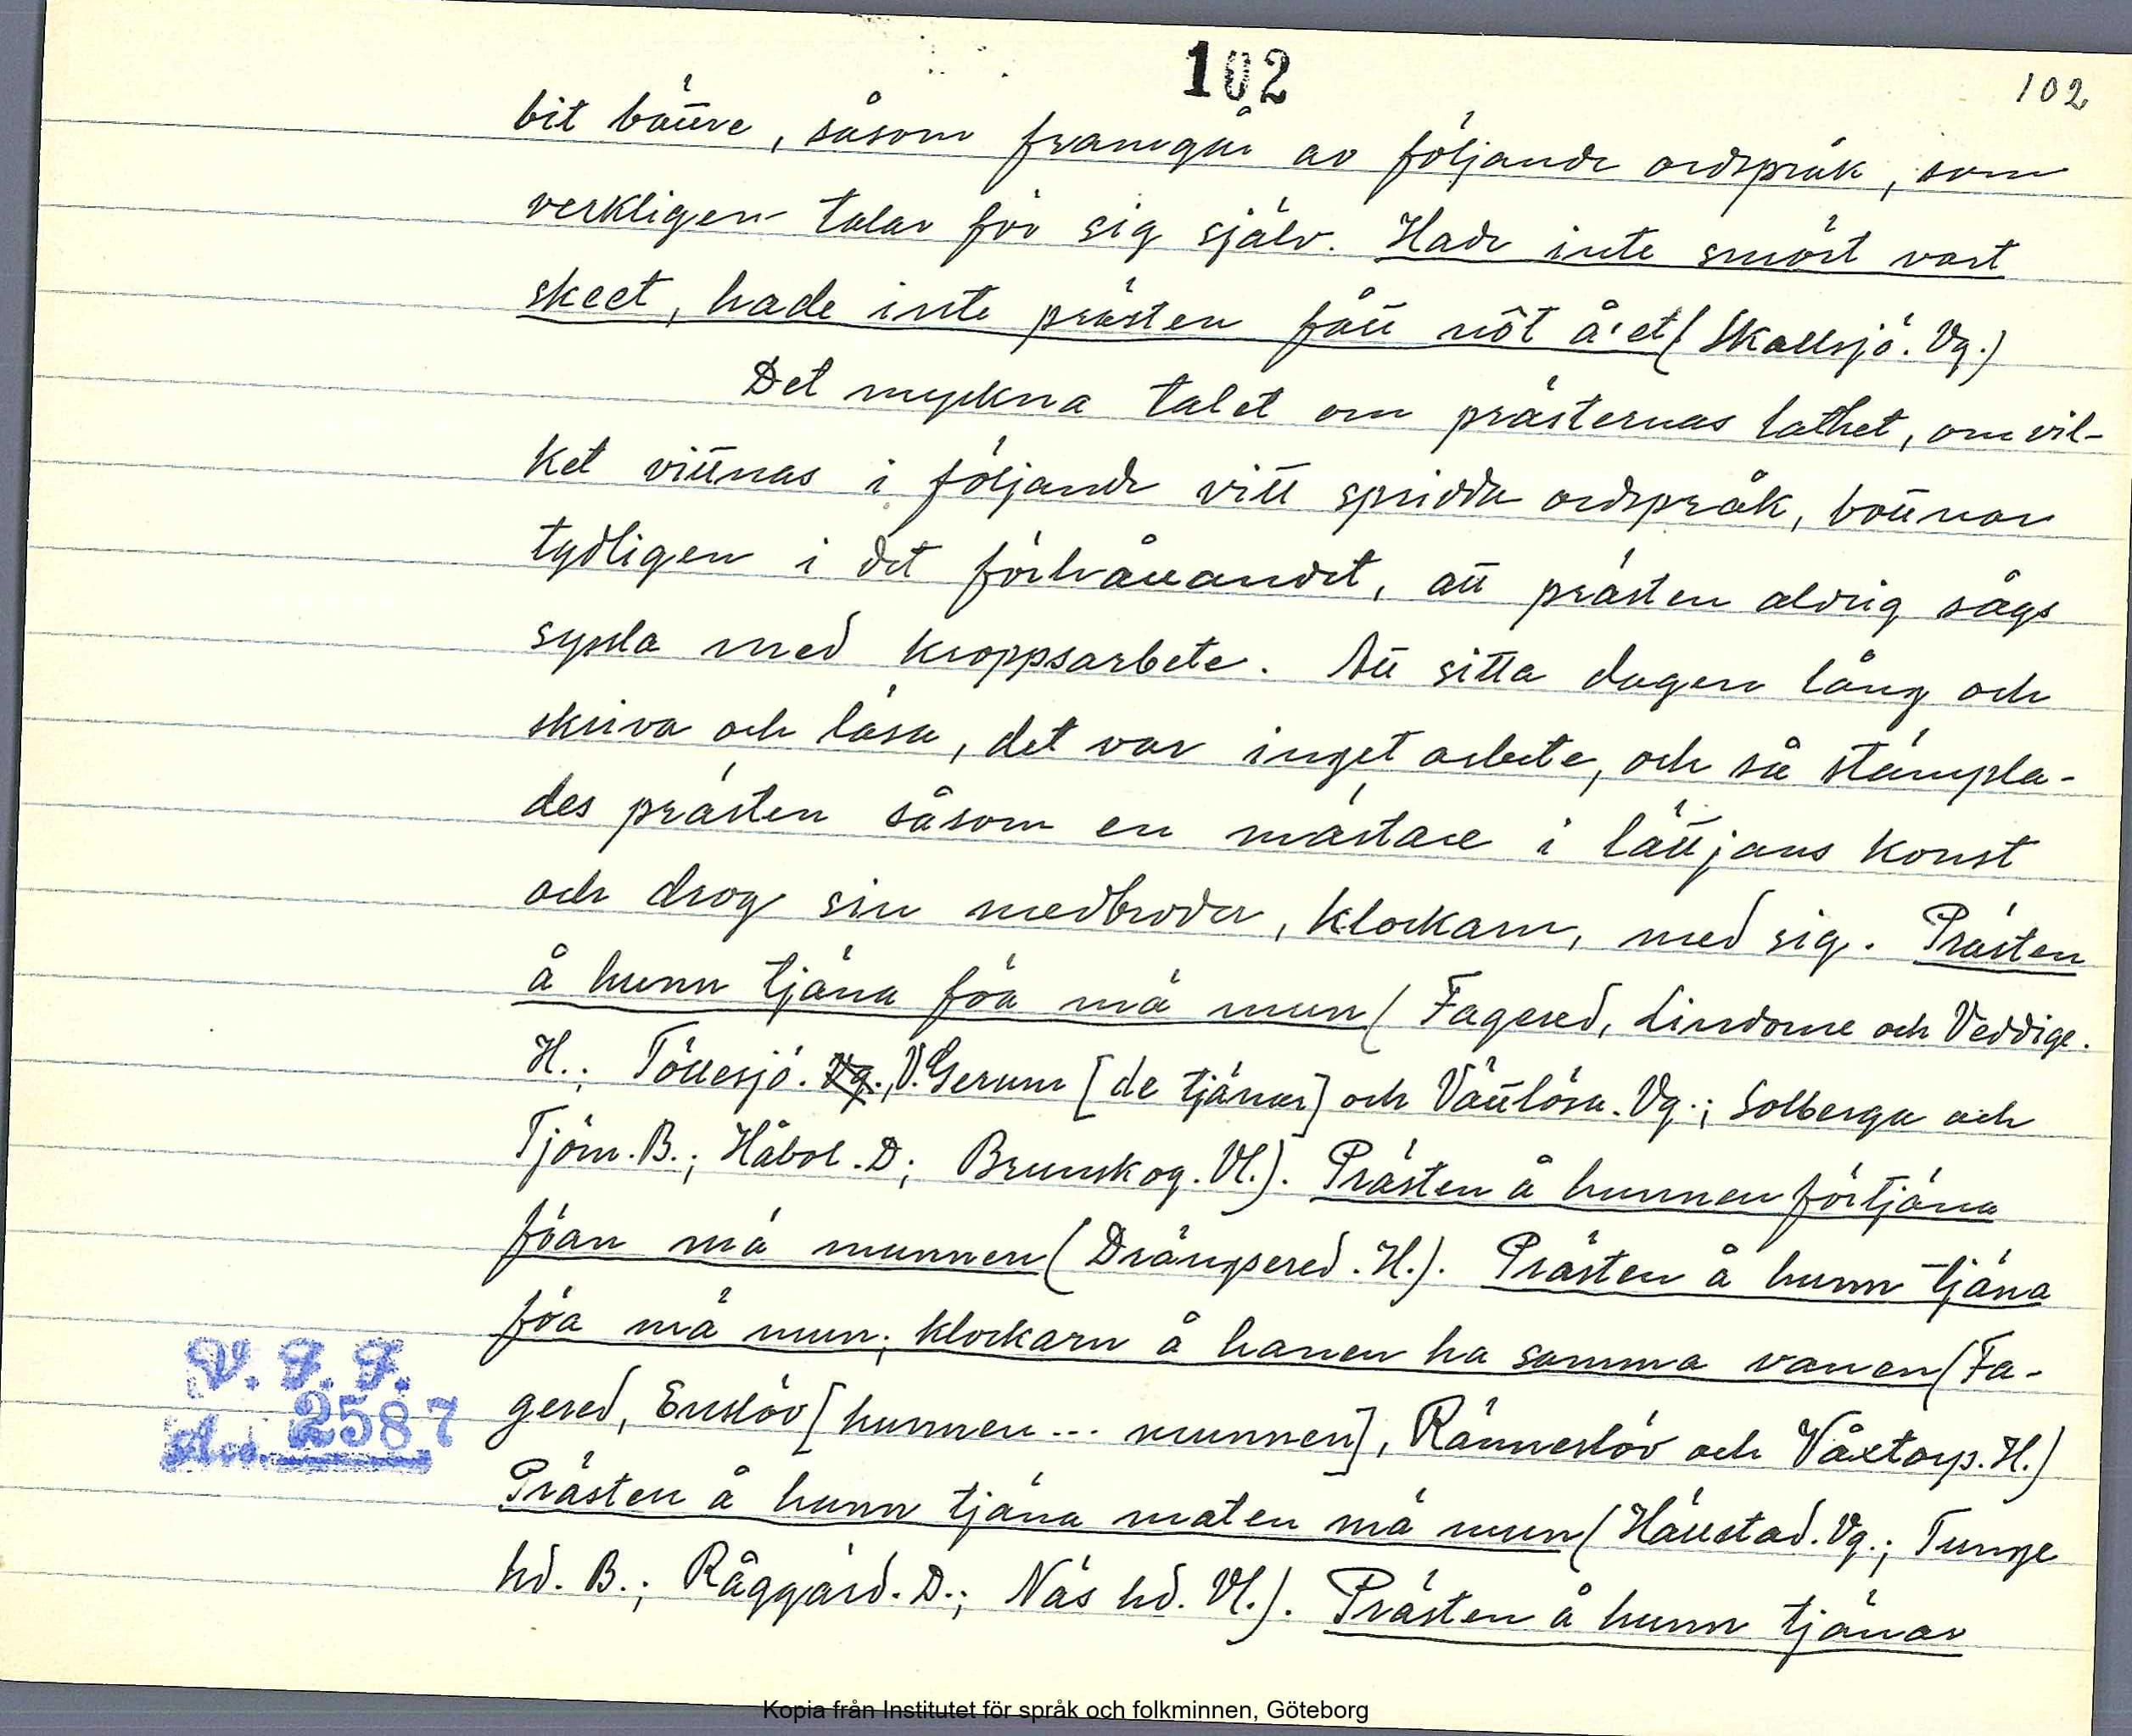 102
102
bit bättre, såsom framgår av följande ordspråk, som
verkligen talar för sig själv. Hade inte smört vart
skeet, hade inte prästen fått nôt å'et (Skallsjö. Vg.)
Det myckna talet om prästernas lathet, om vil-
ket vittnas i följande vitt spridda ordspråk, bottnar
tydligen i det förhållandet, att prästen aldrig sågs
syssla med kroppsarbete. Att sitta dagen lång och
skriva och läsa, det var inget arbete, och så stämpla-
des prästen såsom en mästare i lättjans konst
och drog sin medbroder, klockarn, med sig. Prästen
å hunn tjäna föa mä mun (Fagered, Lindome och Veddige.
H.; Töllesjö. Vg., V. Gerum [de tjänar] och Vättlösa. Vg.; Solberga och
Tjörn. B.; Håbol. D; Brunskog. Vl.). Prästen å hunnen förtjäna
föan mä munnen (Drängsered. H.). Prästen å hunn tjäna
föa mä mun; klockarn å hanen ha samma vanen (Fa-
gered, Enslöv [hunnen ... munnen], Ränneslöv och Våxtorp. H.)
Prästen å hunn tjäna maten mä mun (Hällstad. Vg.; Tunge
hd. B.; Råggärd. D.; Näs hd. Vl.). Prästen å hunn tjänar
V. F. F.
2587
Kopia från Institutet för språk och folkminnen, Göteborg